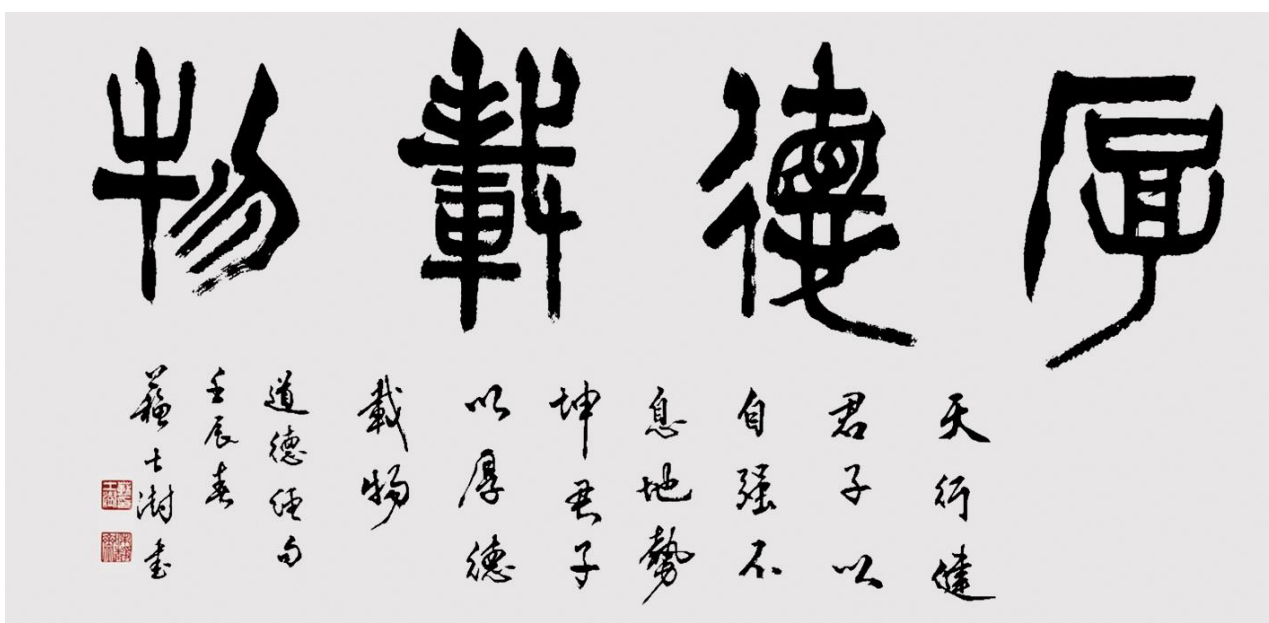 厚德載物
天行健
君子以
自强不
息地勢
坤君子
以厚德
載物
道德经句
壬辰春
蘇士澍书